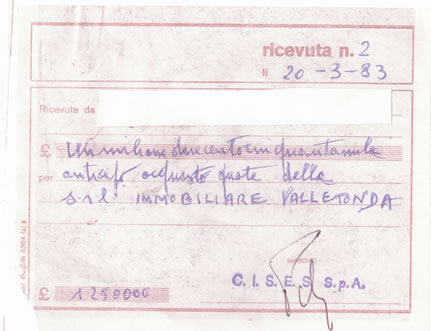 ricevuta n. 2
li 20-3-83
Ricevute da
£ Un milione duecentocinquantamila
per anticipo acquisto quote della
s.r.l. IMMOBILIARE VALLETONDA
MARCHE
C.I.S.E.S. S.p.A.
£ 1250000